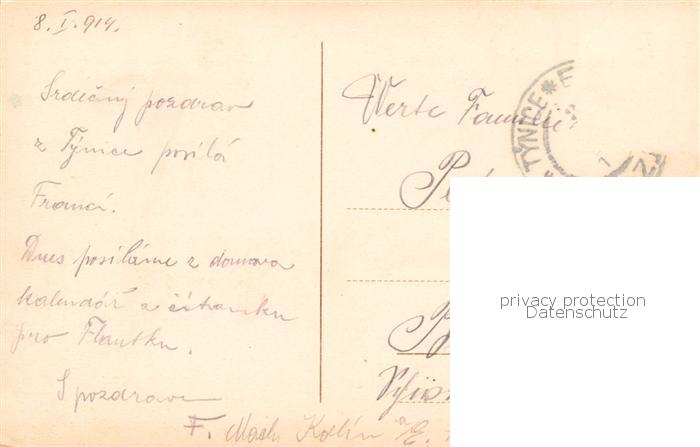 8. I. 914.
Srdečný pozdrav
z Týnice posílá
Franci.
Dnes posíláme z domova
kalendář a čítanku
pro Flautku.
S pozdravem
F. Mach Kolín a/E.
Werte Familie
TÝNICE * E
privacy protection
Datenschutz